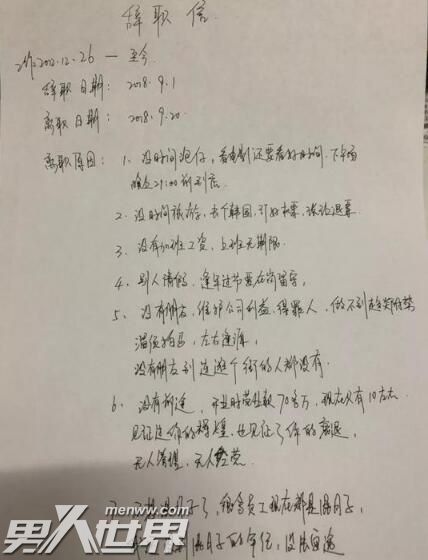 辞职信
2012.12.26 — 至今
辞职日期: 2018.9.1
离职日期: 2018.9.20.
离职原因: 1、没时间泡仔,看电影还要看好时间、下午场
晚上21:00前到底.
2、没时间旅游,去个韩国,订好票,
3、没有加班工资,上班无期限.
4、别人请假,逢年过节要在岗留守,
5、没有朋友,维护公司利益,得罪人,做不到趋炎附势
溜须拍马,左右逢源,
没有朋友到连逛个街的人都没有.
6、没有前途,开业时营业额70多万,现在只有10左右
见证过你的辉煌,也见证了你的衰退,
无人清醒,无人
了,员工现在都是混日子,
混日子的
男人世界
MENWORLD
menww.com